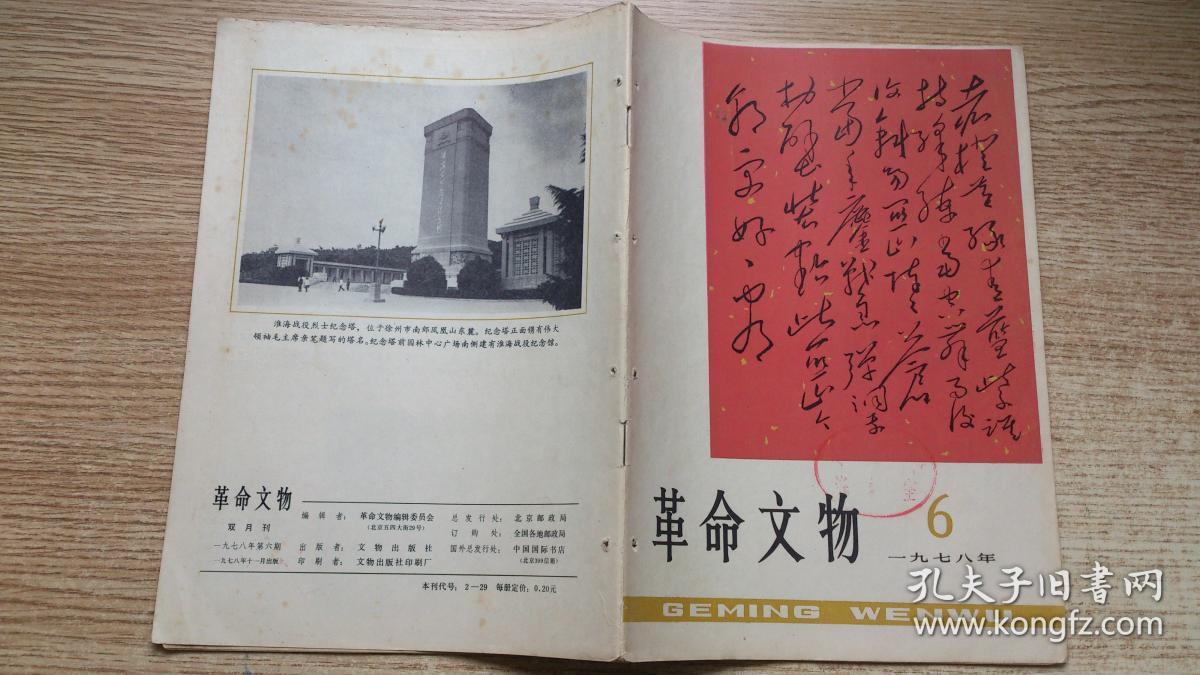 淮海战役烈士纪念塔，位于徐州市南郊凤凰山东麓。纪念塔正面镌有伟大
领袖毛主席亲笔题写的塔名。纪念塔前园林中心广场南侧建有淮海战役纪念馆。
革命文物
双月刊
一九七八年第六期
一九七八年十一月出版
编辑者：革命文物编辑委员会
（北京五四大街29号）
出版者：文物出版社
印刷者：文物出版社印刷厂
总发行处：北京邮政局
订购处：全国各地邮政局
国外总发行处：中国国际书店
（北京399信箱）
本刊代号：2—29 每册定价：0.20元
赤橙黄綠青藍紫誰
持彩練当空舞雨后
復斜陽関山陣陣蒼
当年鏖戰急彈洞
前村壁裝點此関山今
朝更好看
革命文物
6
一九七八年
GEMING WENWU
孔夫子旧书网
www.kongfz.com